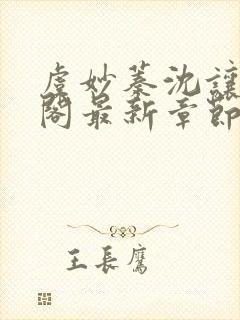 虞妙蓁沈讓
閣最新章節
王長鷹